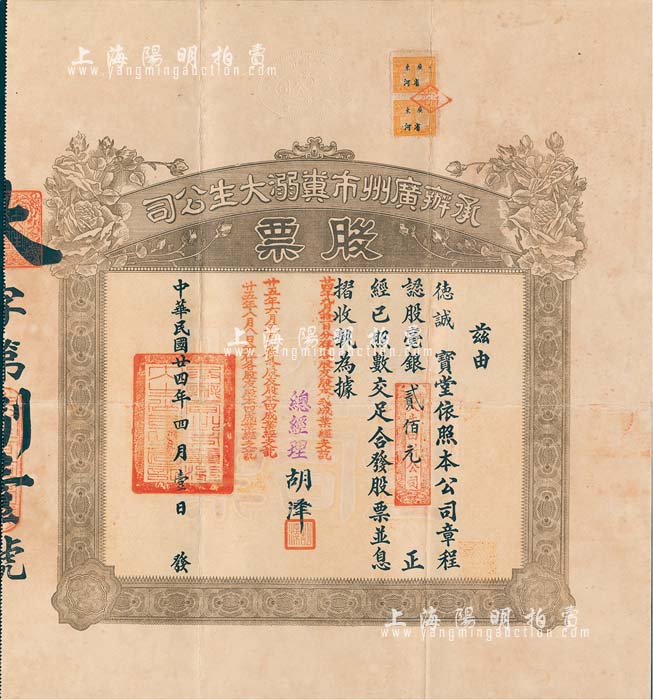 上海陽明拍賣
www.yangmingauction.com
廣東
省河
廣東
省河
承辦廣州市糞溺大生公司
股票
茲由
德誠 寶堂依照本公司章程
認股毫銀貳佰元 正
經已照數交足合發股票並息
摺收執為據
總經理 胡澤
中華民國廿四年四月壹日 發
大字第 號
上海陽明拍賣
www.yangmingauction.com